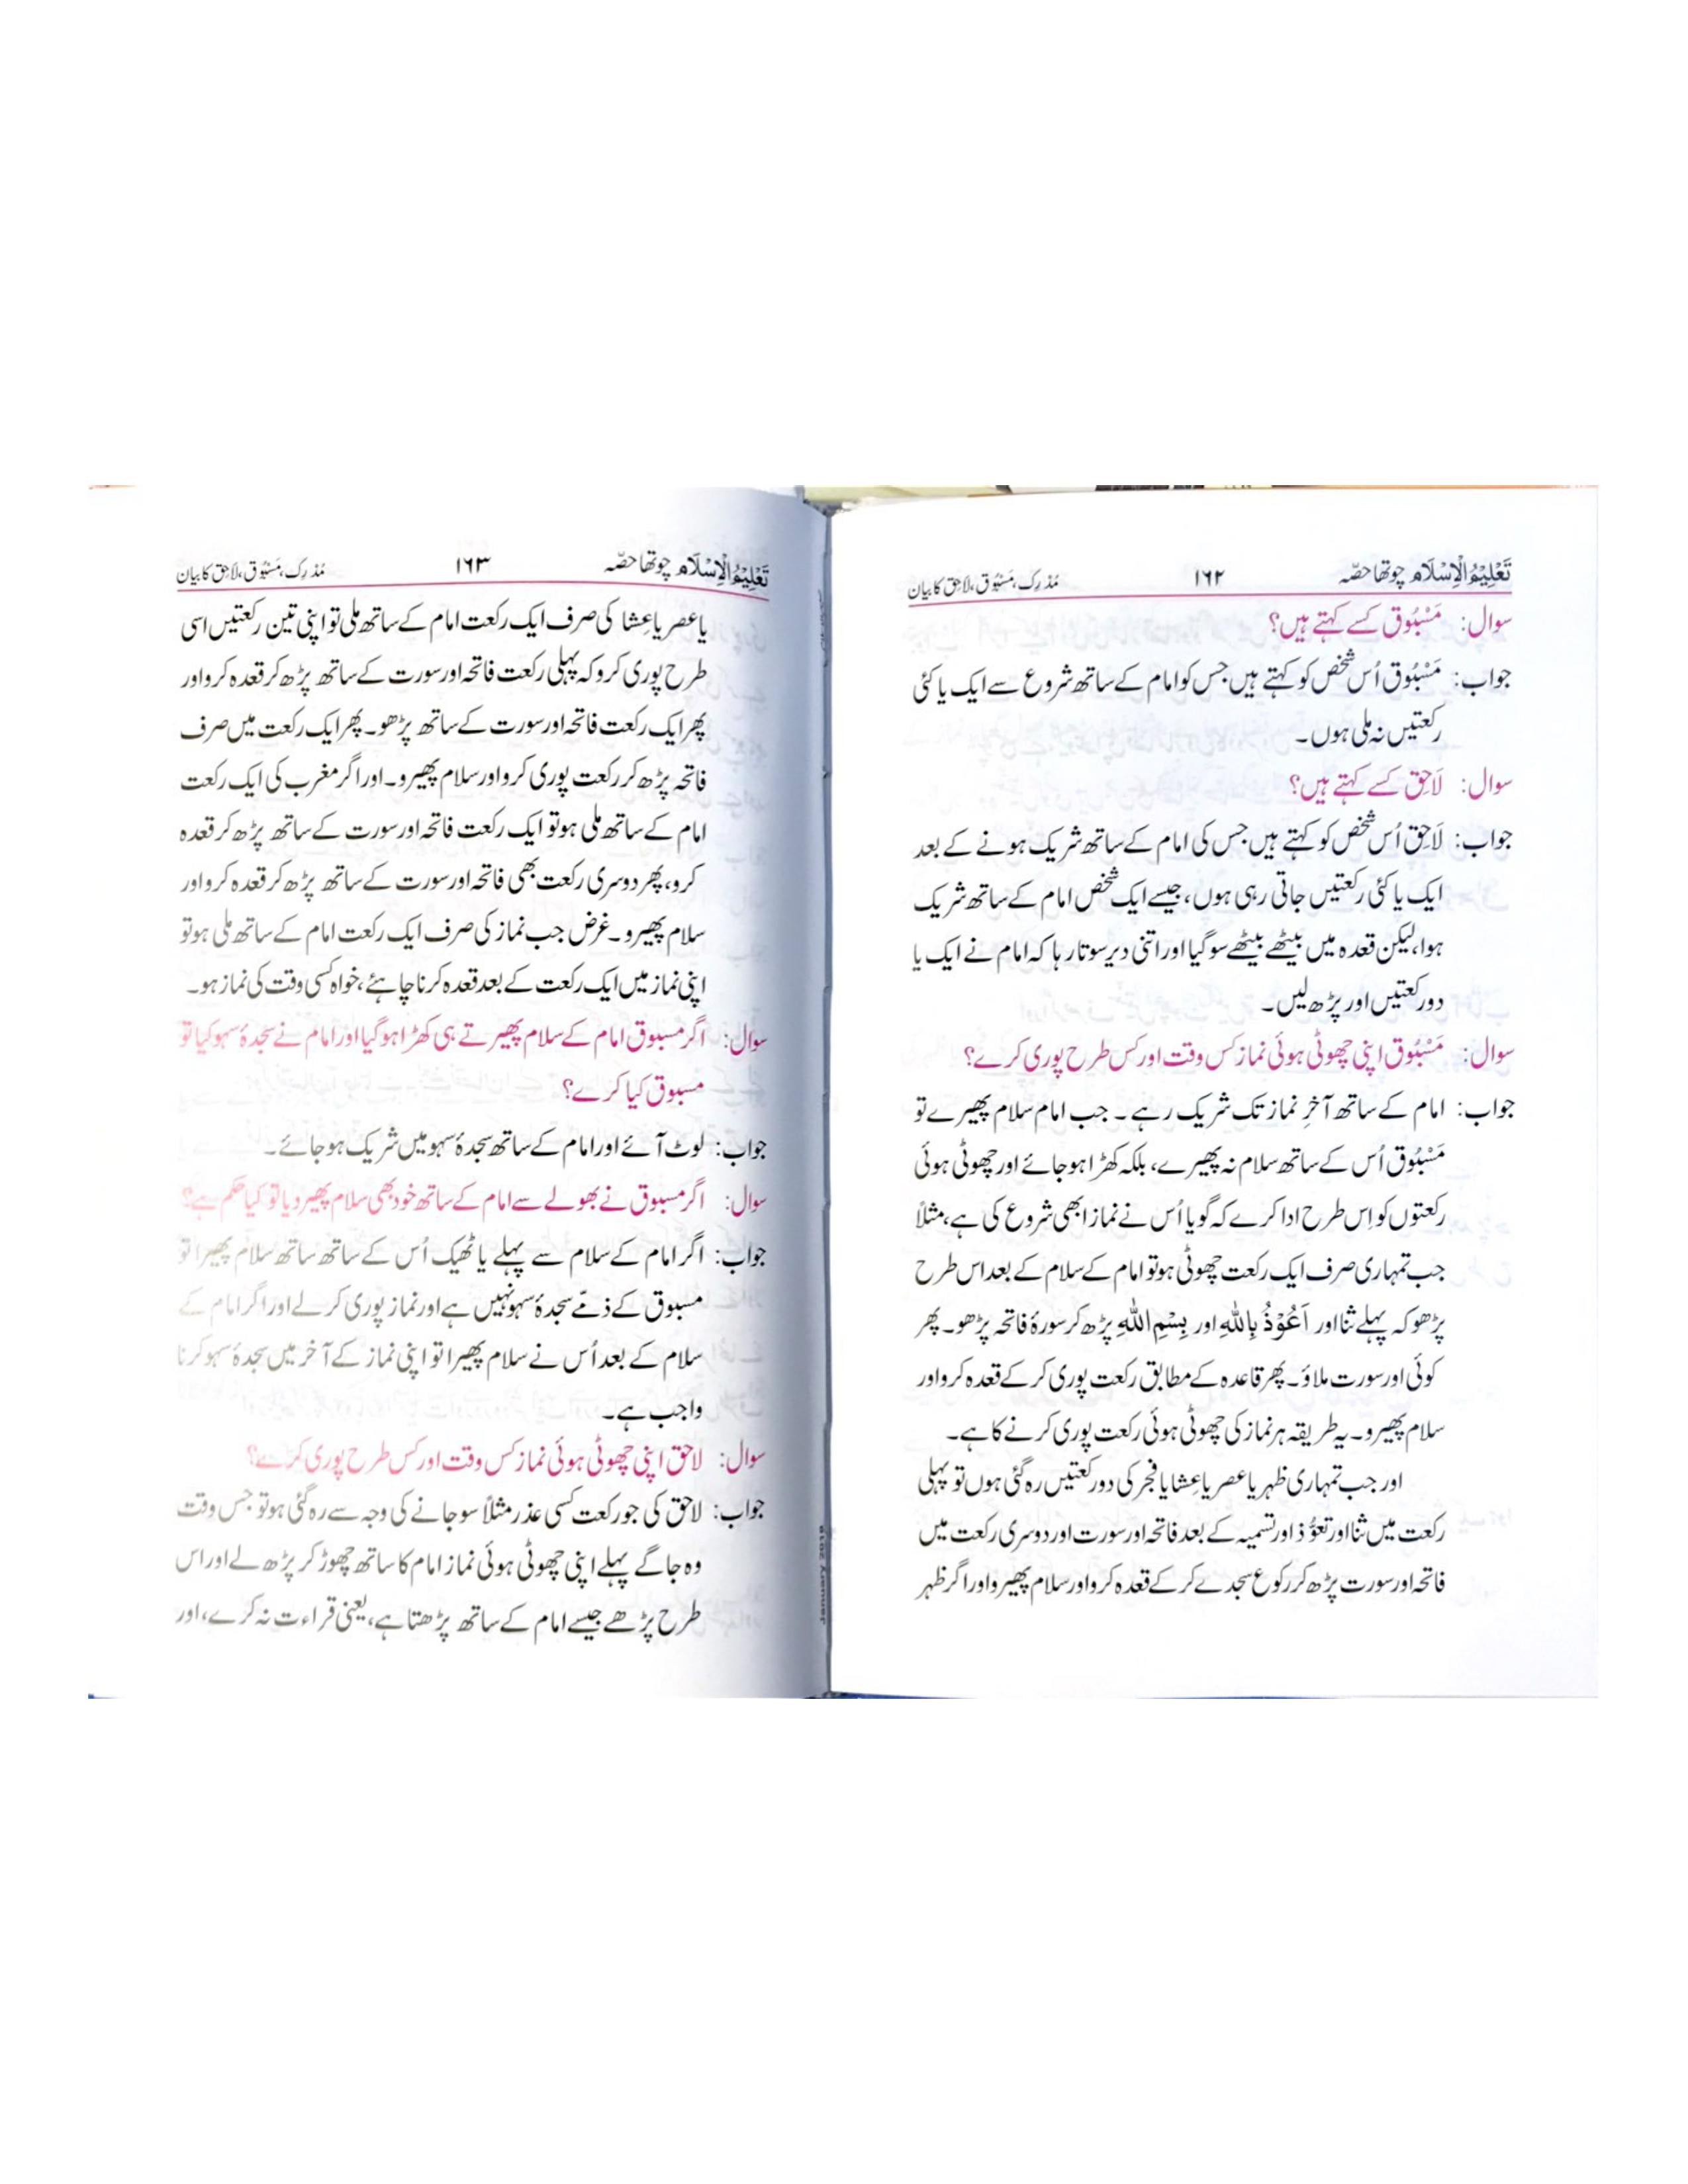 تَعْلِیْمُ الْاِسْلَام چوتھا حصّہ ۱۶۲ مُدْرِک، مَسْبُوْق، لَاحِق کا بیان
سوال: مَسْبُوْق کسے کہتے ہیں؟
جواب: مَسْبُوْق اُس شخص کو کہتے ہیں جس کو امام کے ساتھ شروع سے ایک یا کئی
رکعتیں نہ ملی ہوں۔
سوال: لَاحِق کسے کہتے ہیں؟
جواب: لَاحِق اُس شخص کو کہتے ہیں جس کی امام کے ساتھ شریک ہونے کے بعد
ایک یا کئی رکعتیں جاتی رہی ہوں، جیسے ایک شخص امام کے ساتھ شریک
ہوا، لیکن قعدہ میں بیٹھے بیٹھے سو گیا اور اتنی دیر سوتا رہا کہ امام نے ایک یا
دو رکعتیں اور پڑھ لیں۔
سوال: مَسْبُوْق اپنی چھوٹی ہوئی نماز کس وقت اور کس طرح پوری کرے؟
جواب: امام کے ساتھ آخرِ نماز تک شریک رہے۔ جب امام سلام پھیرے تو
مَسْبُوْق اُس کے ساتھ سلام نہ پھیرے، بلکہ کھڑا ہو جائے اور چھوٹی ہوئی
رکعتوں کو اِس طرح ادا کرے کہ گویا اُس نے نماز ابھی شروع کی ہے، مثلاً
جب تمہاری صرف ایک رکعت چھوٹی ہو تو امام کے سلام کے بعد اس طرح
پڑھو کہ پہلے ثنا اور اَعُوْذُ بِاللّٰهِ اور بِسْمِ اللّٰهِ پڑھ کر سورۂ فاتحہ پڑھو۔ پھر
کوئی اور سورت ملاؤ۔ پھر قاعدہ کے مطابق رکعت پوری کر کے قعدہ کرو اور
سلام پھیرو۔ یہ طریقہ ہر نماز کی چھوٹی ہوئی رکعت پوری کرنے کا ہے۔
اور جب تمہاری ظہر یا عصر یا عِشا یا فجر کی دو رکعتیں رہ گئی ہوں تو پہلی
رکعت میں ثنا اور تعوُّذ اور تسمیہ کے بعد فاتحہ اور سورت اور دوسری رکعت میں
فاتحہ اور سورت پڑھ کر رکوع سجدے کر کے قعدہ کرو اور سلام پھیرو اور اگر ظہر
تَعْلِیْمُ الْاِسْلَام چوتھا حصّہ ۱۶۳ مُدْرِک، مَسْبُوْق، لَاحِق کا بیان
یا عصر یا عِشا کی صرف ایک رکعت امام کے ساتھ ملی تو اپنی تین رکعتیں اسی
طرح پوری کرو کہ پہلی رکعت فاتحہ اور سورت کے ساتھ پڑھ کر قعدہ کرو اور
پھر ایک رکعت فاتحہ اور سورت کے ساتھ پڑھو۔ پھر ایک رکعت میں صرف
فاتحہ پڑھ کر رکعت پوری کرو اور سلام پھیرو۔ اور اگر مغرب کی ایک رکعت
امام کے ساتھ ملی ہو تو ایک رکعت فاتحہ اور سورت کے ساتھ پڑھ کر قعدہ
کرو، پھر دوسری رکعت بھی فاتحہ اور سورت کے ساتھ پڑھ کر قعدہ کرو اور
سلام پھیرو۔ غرض جب نماز کی صرف ایک رکعت امام کے ساتھ ملی ہو تو
اپنی نماز میں ایک رکعت کے بعد قعدہ کرنا چاہئے، خواہ کسی وقت کی نماز ہو۔
سوال: اگر مسبوق امام کے سلام پھیرتے ہی کھڑا ہو گیا اور امام نے سجدۂ سہو کیا تو
مسبوق کیا کرے؟
جواب: لوٹ آئے اور امام کے ساتھ سجدۂ سہو میں شریک ہو جائے۔
سوال: اگر مسبوق نے بھولے سے امام کے ساتھ خود بھی سلام پھیر دیا تو کیا حکم ہے؟
جواب: اگر امام کے سلام سے پہلے یا ٹھیک اُس کے ساتھ ساتھ سلام پھیرا تو
مسبوق کے ذمّے سجدۂ سہو نہیں ہے اور نماز پوری کر لے اور اگر امام کے
سلام کے بعد اُس نے سلام پھیرا تو اپنی نماز کے آخر میں سجدۂ سہو کرنا
واجب ہے۔
سوال: لاحق اپنی چھوٹی ہوئی نماز کس وقت اور کس طرح پوری کرے؟
جواب: لاحق کی جو رکعت کسی عذر مثلاً سو جانے کی وجہ سے رہ گئی ہو تو جس وقت
وہ جاگے پہلے اپنی چھوٹی ہوئی نماز امام کا ساتھ چھوڑ کر پڑھ لے اور اس
طرح پڑھے جیسے امام کے ساتھ پڑھتا ہے، یعنی قراءت نہ کرے، اور
January 2019